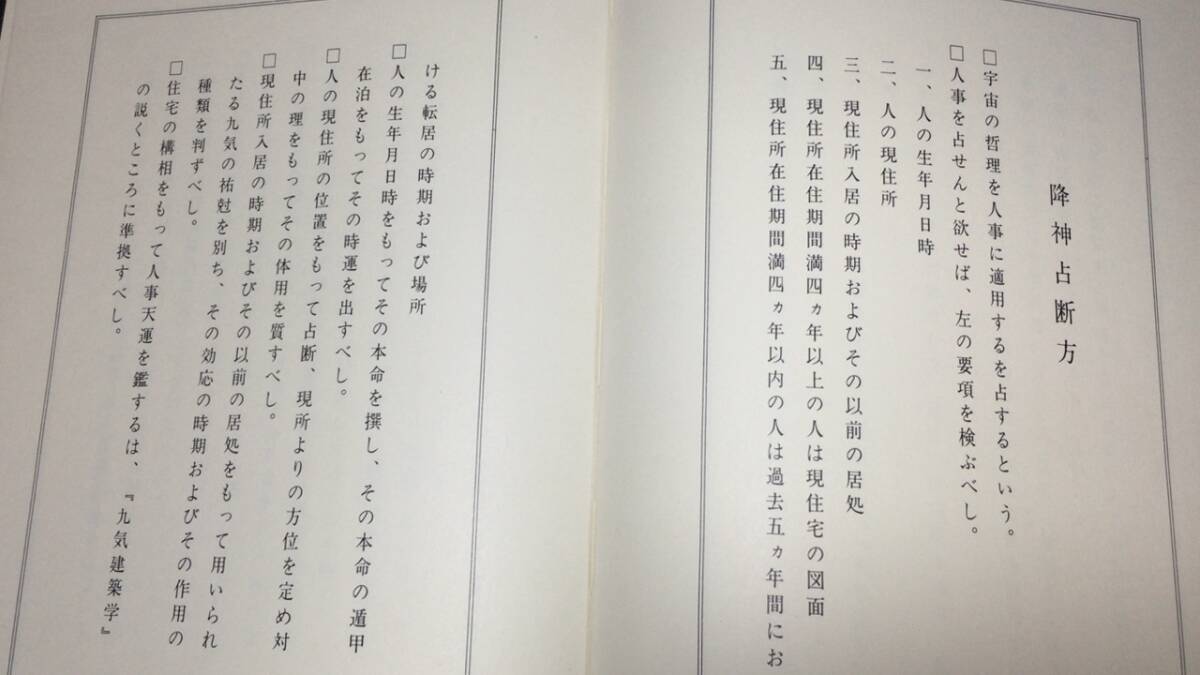 降神占断方
□宇宙の哲理を人事に適用するを占するという。
□人事を占せんと欲せば、左の要項を検ぶべし。
一、人の生年月日時
二、人の現住所
三、現住所入居の時期およびその以前の居処
四、現住所在住期間満四ヵ年以上の人は現住宅の図面
五、現住所在住期間満四ヵ年以内の人は過去五ヵ年間にお
ける転居の時期および場所
□人の生年月日時をもってその本命を撰し、その本命の遁甲
在泊をもってその時運を出すべし。
□人の現住所の位置をもって占断、現所よりの方位を定め対
中の理をもってその体用を質すべし。
□現住所入居の時期およびその以前の居処をもって用いられ
たる九気の祐尅を別ち、その効応の時期およびその作用の
種類を判ずべし。
□住宅の構相をもって人事天運を鑑するは、『九気建築学』
の説くところに準拠すべし。